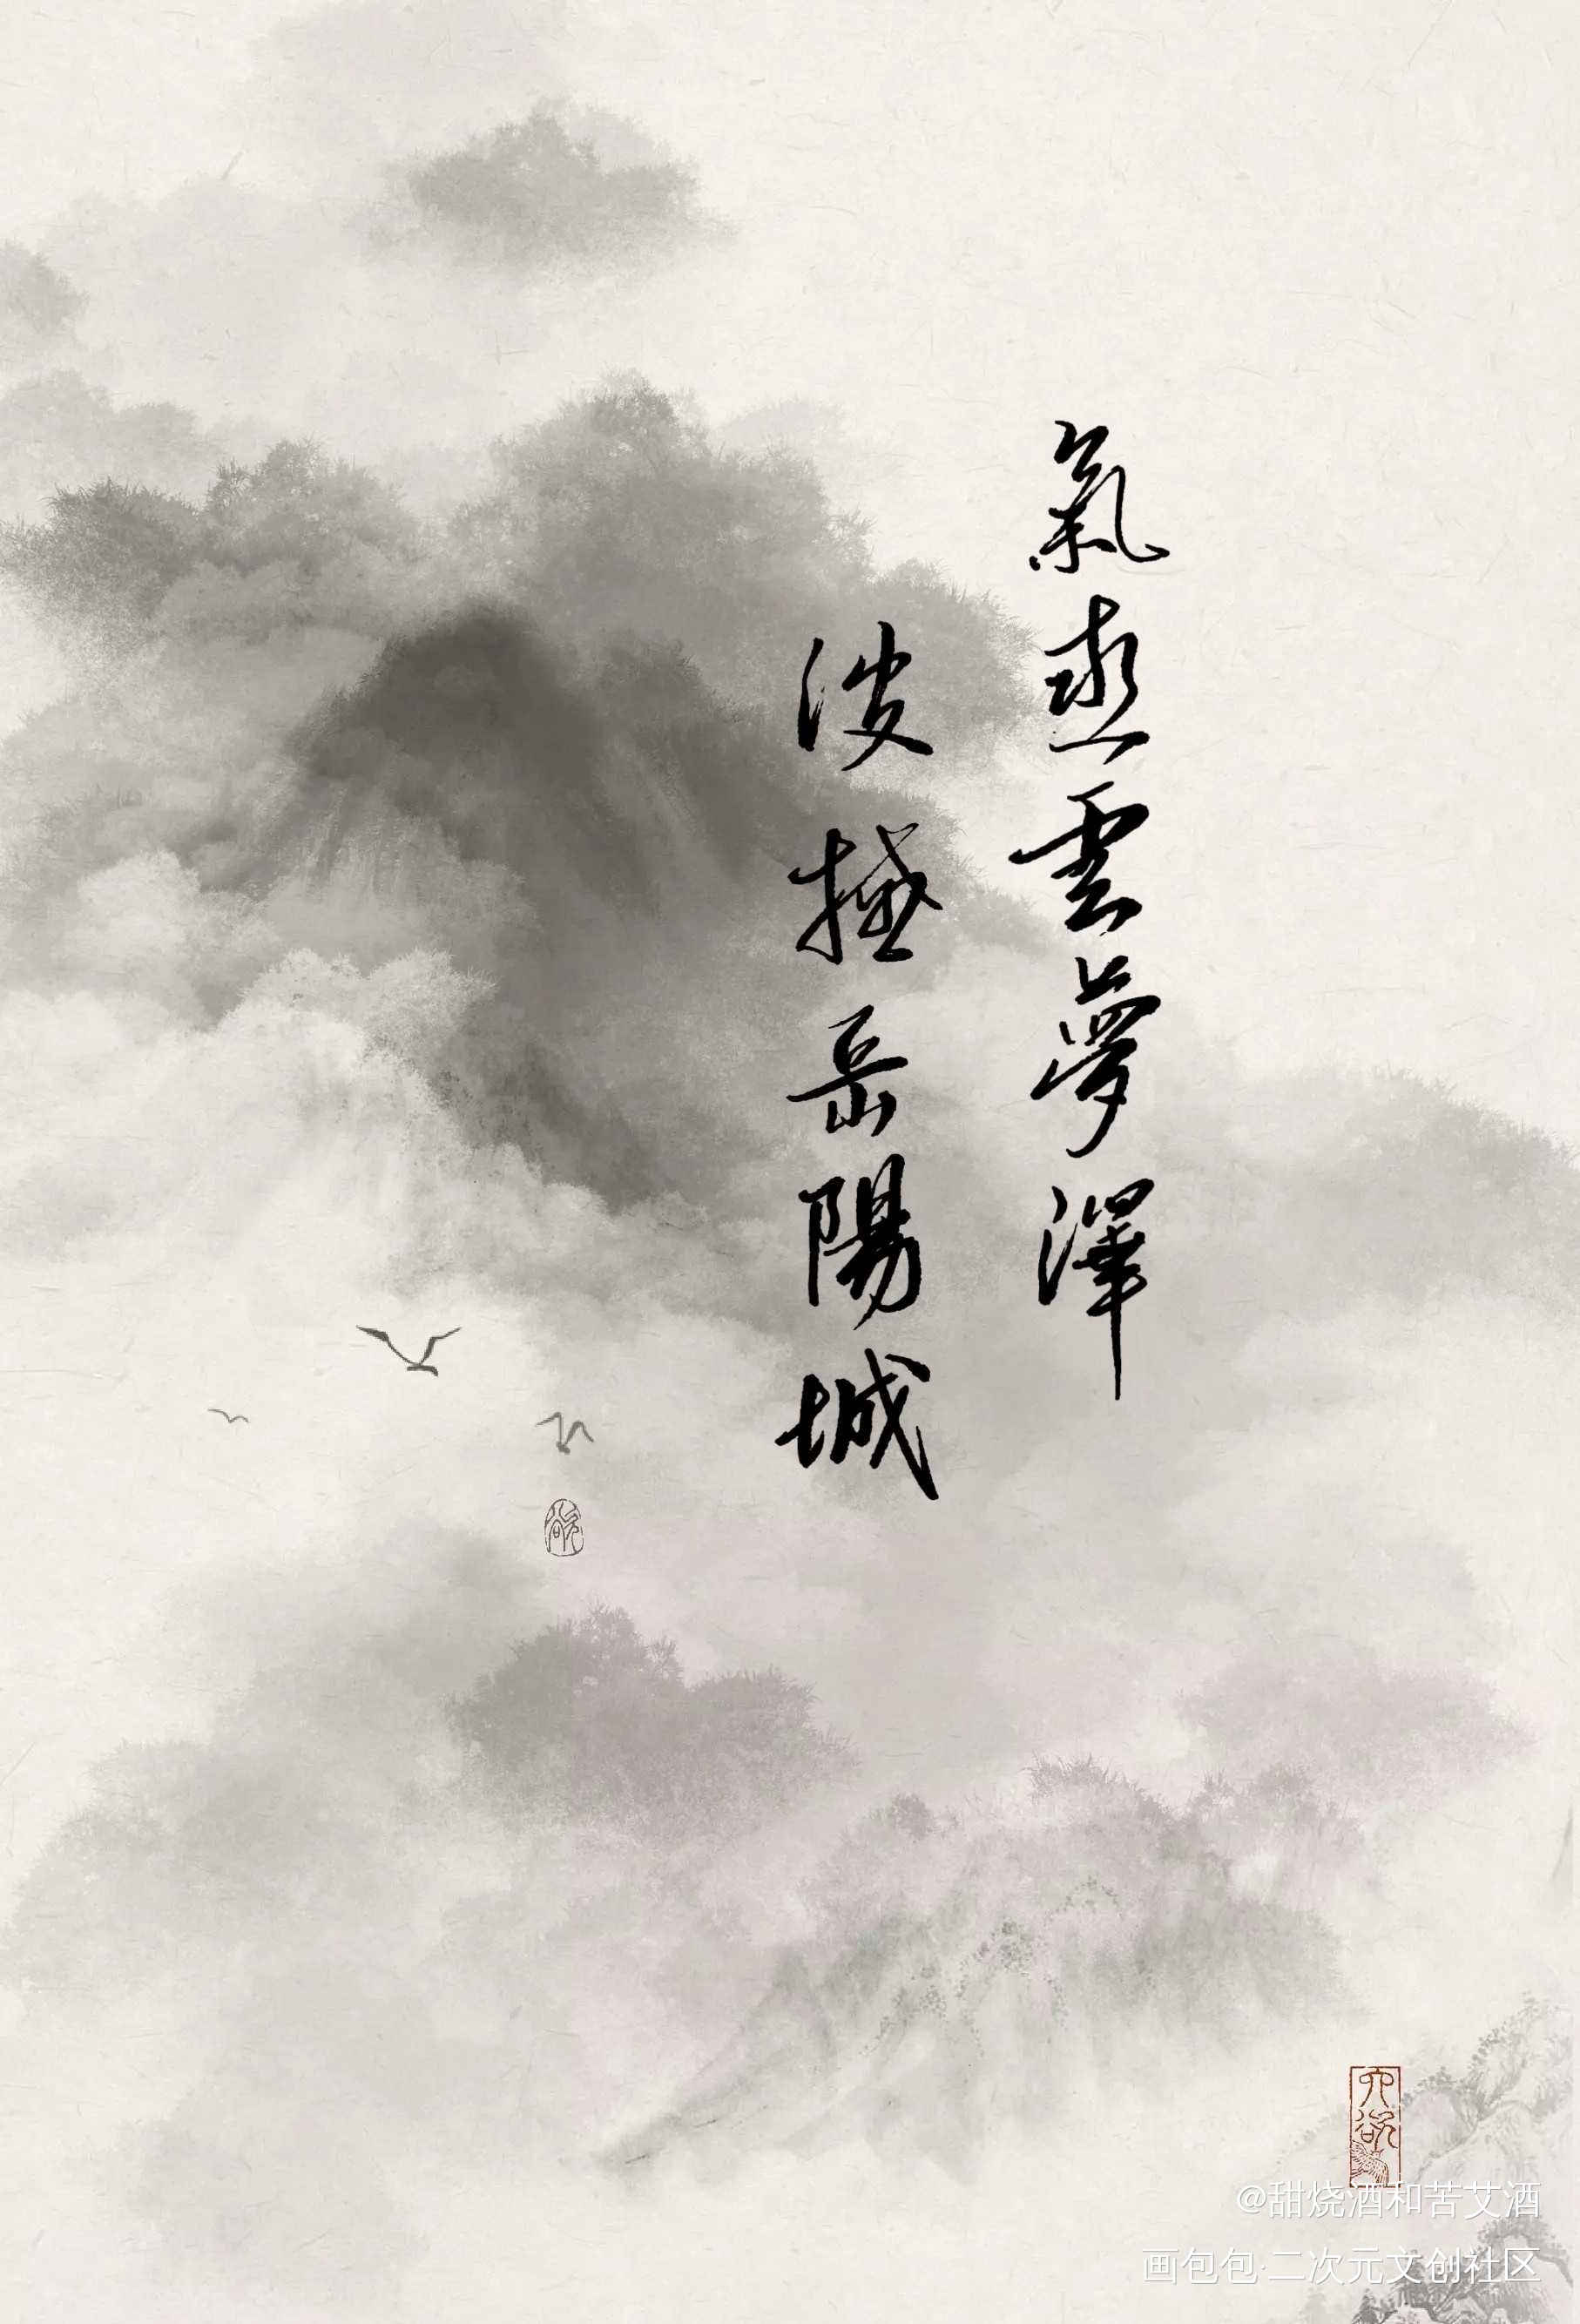 氣蒸雲夢澤
波撼岳陽城
欲
六欲
@甜烧酒和苦艾酒
画包包·二次元文创社区